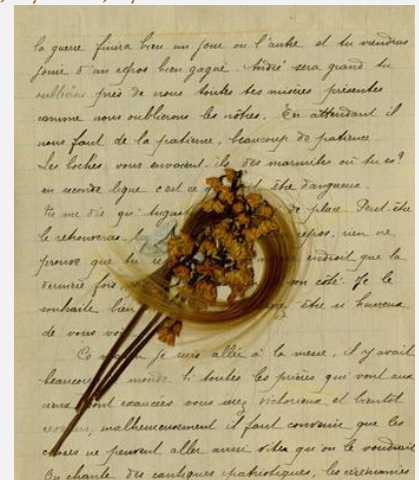 la guerre finira bien un jour ou l'autre et tu viendras
jouir d'un repos bien gagné. André sera grand tu
oublieras près de nous toutes tes misères présentes
comme nous oublierons les nôtres. En attendant il
nous faut de la patience, beaucoup de patience
Les boches vous envoient-ils des marmites où tu es?
en seconde ligne c'est ce q être dangereux.
Tu me dis qu' de place. Peut-être
le retrouveras repos, rien ne
prouve que tu endroit que la
dernière fois côté. Je le
souhaite bien être si heureux
de vous voir
je suis allée à la messe, il y avait
beaucoup monde. Si toutes les prières qui vont aux
cieux sont exaucées vous serez victorieux et bientôt
malheureusement il faut convenir que les
choses ne peuvent aller aussi vites qu'on le voudrait
On chante des cantiques patriotiques, les cérémonies